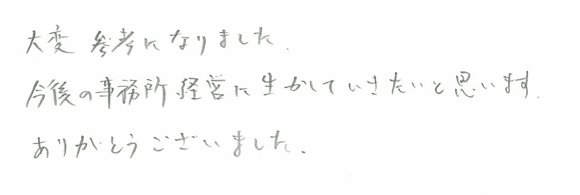 大変 参考になりました.
今後の事務所経営に生かしていきたいと思います.
ありがとうございました.